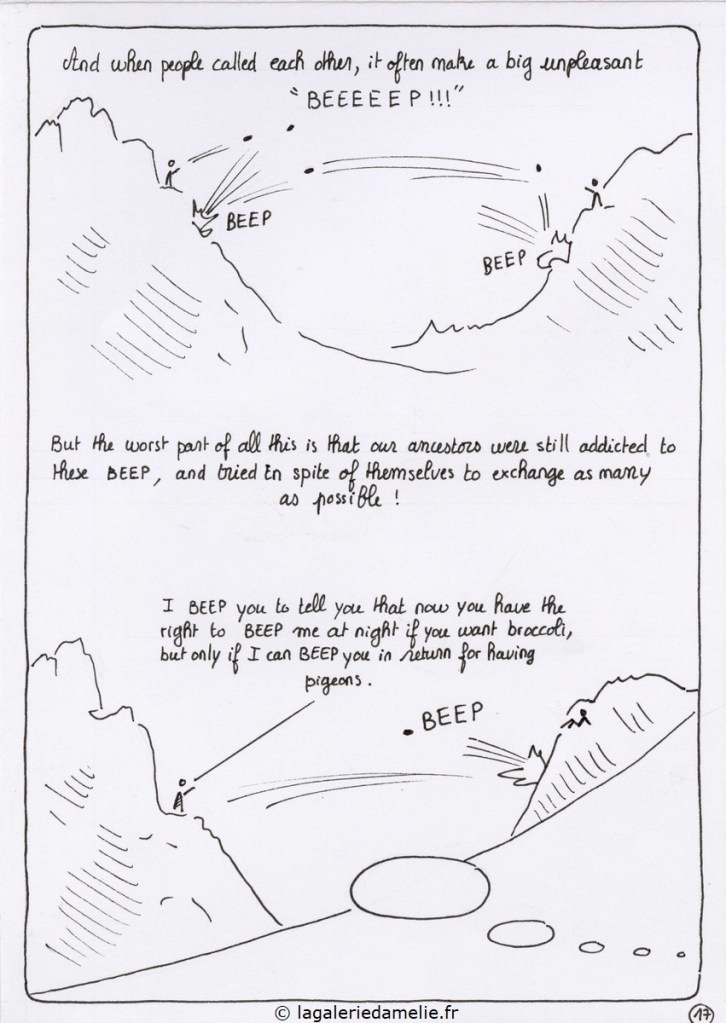 And when people called each other, it often make a big unpleasant
"BEEEEEP!!!"
BEEP
BEEP
But the worst part of all this is that our ancestors were still addicted to
these BEEP, and tried in spite of themselves to exchange as many
as possible !
I BEEP you to tell you that now you have the
right to BEEP me at night if you want broccoli,
but only if I can BEEP you in return for having
pigeons.
BEEP
© lagaleriedamelie.fr
17